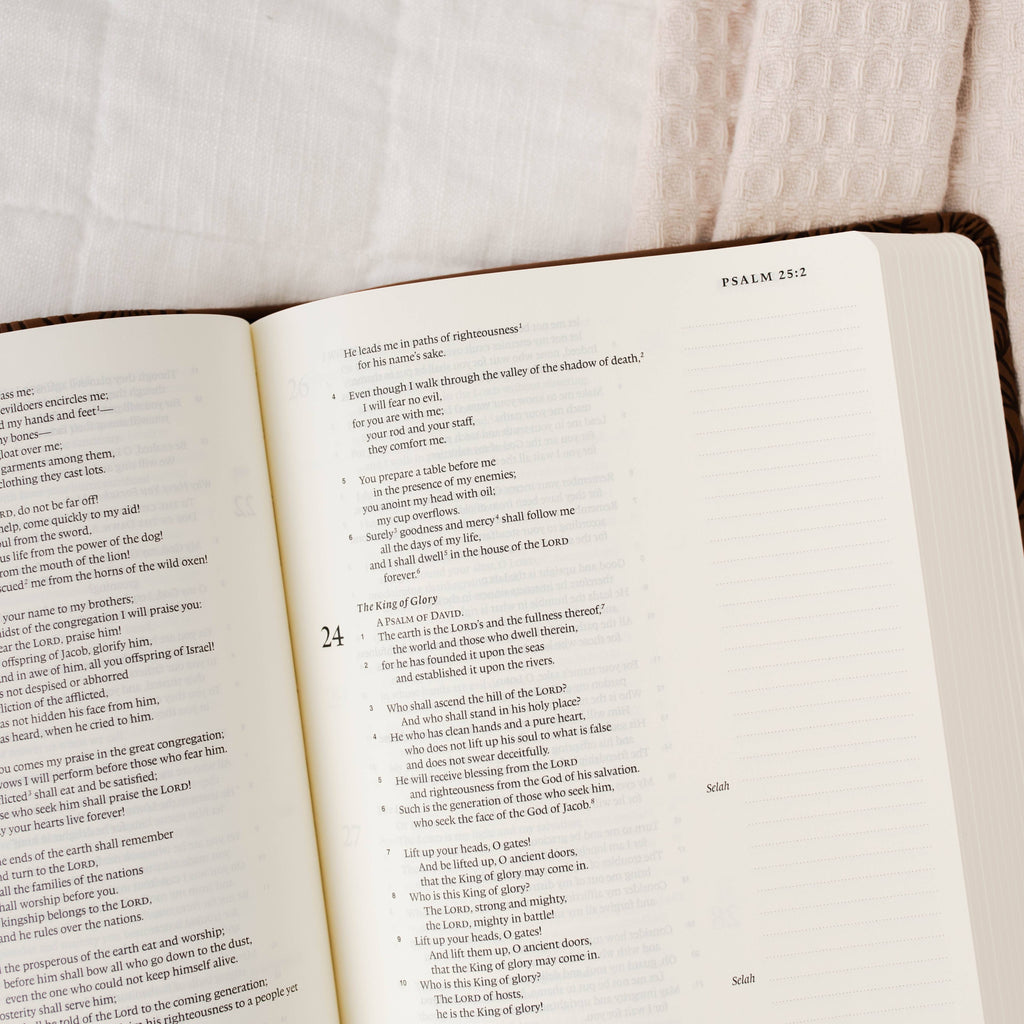 ass me;
evildoers encircles me;
d my hands and feet¹—
ny bones—
gloat over me;
garments among them,
clothing they cast lots.
RD, do not be far off!
help, come quickly to my aid!
oul from the sword,
us life from the power of the dog!
from the mouth of the lion!
scued² me from the horns of the wild oxen!
your name to my brothers;
midst of the congregation I will praise you:
ear the LORD, praise him!
offspring of Jacob, glorify him,
and in awe of him, all you offspring of Israel!
s not despised or abhorred
fliction of the afflicted,
as not hidden his face from him,
as heard, when he cried to him.
ou comes my praise in the great congregation;
vows I will perform before those who fear him.
flicted³ shall eat and be satisfied;
se who seek him shall praise the LORD!
y your hearts live forever!
e ends of the earth shall remember
nd turn to the LORD,
all the families of the nations
shall worship before you.
kingship belongs to the LORD,
and he rules over the nations.
the prosperous of the earth eat and worship;
before him shall bow all who go down to the dust,
even the one who could not keep himself alive.
osterity shall serve him;
all be told of the Lord to the coming generation;
his righteousness to a people yet
PSALM 25:2
He leads me in paths of righteousness¹
for his name's sake.
4 Even though I walk through the valley of the shadow of death,²
I will fear no evil,
for you are with me;
your rod and your staff,
they comfort me.
5 You prepare a table before me
in the presence of my enemies;
you anoint my head with oil;
my cup overflows.
6 Surely³ goodness and mercy⁴ shall follow me
all the days of my life,
and I shall dwell⁵ in the house of the LORD
forever.⁶
The King of Glory
24 A PSALM OF DAVID.
1 The earth is the LORD's and the fullness thereof,⁷
the world and those who dwell therein,
2 for he has founded it upon the seas
and established it upon the rivers.
3 Who shall ascend the hill of the LORD?
And who shall stand in his holy place?
4 He who has clean hands and a pure heart,
who does not lift up his soul to what is false
and does not swear deceitfully.
5 He will receive blessing from the LORD
and righteousness from the God of his salvation.
6 Such is the generation of those who seek him,
who seek the face of the God of Jacob.⁸ Selah
7 Lift up your heads, O gates!
And be lifted up, O ancient doors,
that the King of glory may come in.
8 Who is this King of glory?
The LORD, strong and mighty,
the LORD, mighty in battle!
9 Lift up your heads, O gates!
And lift them up, O ancient doors,
that the King of glory may come in.
10 Who is this King of glory?
The LORD of hosts,
he is the King of glory! Selah